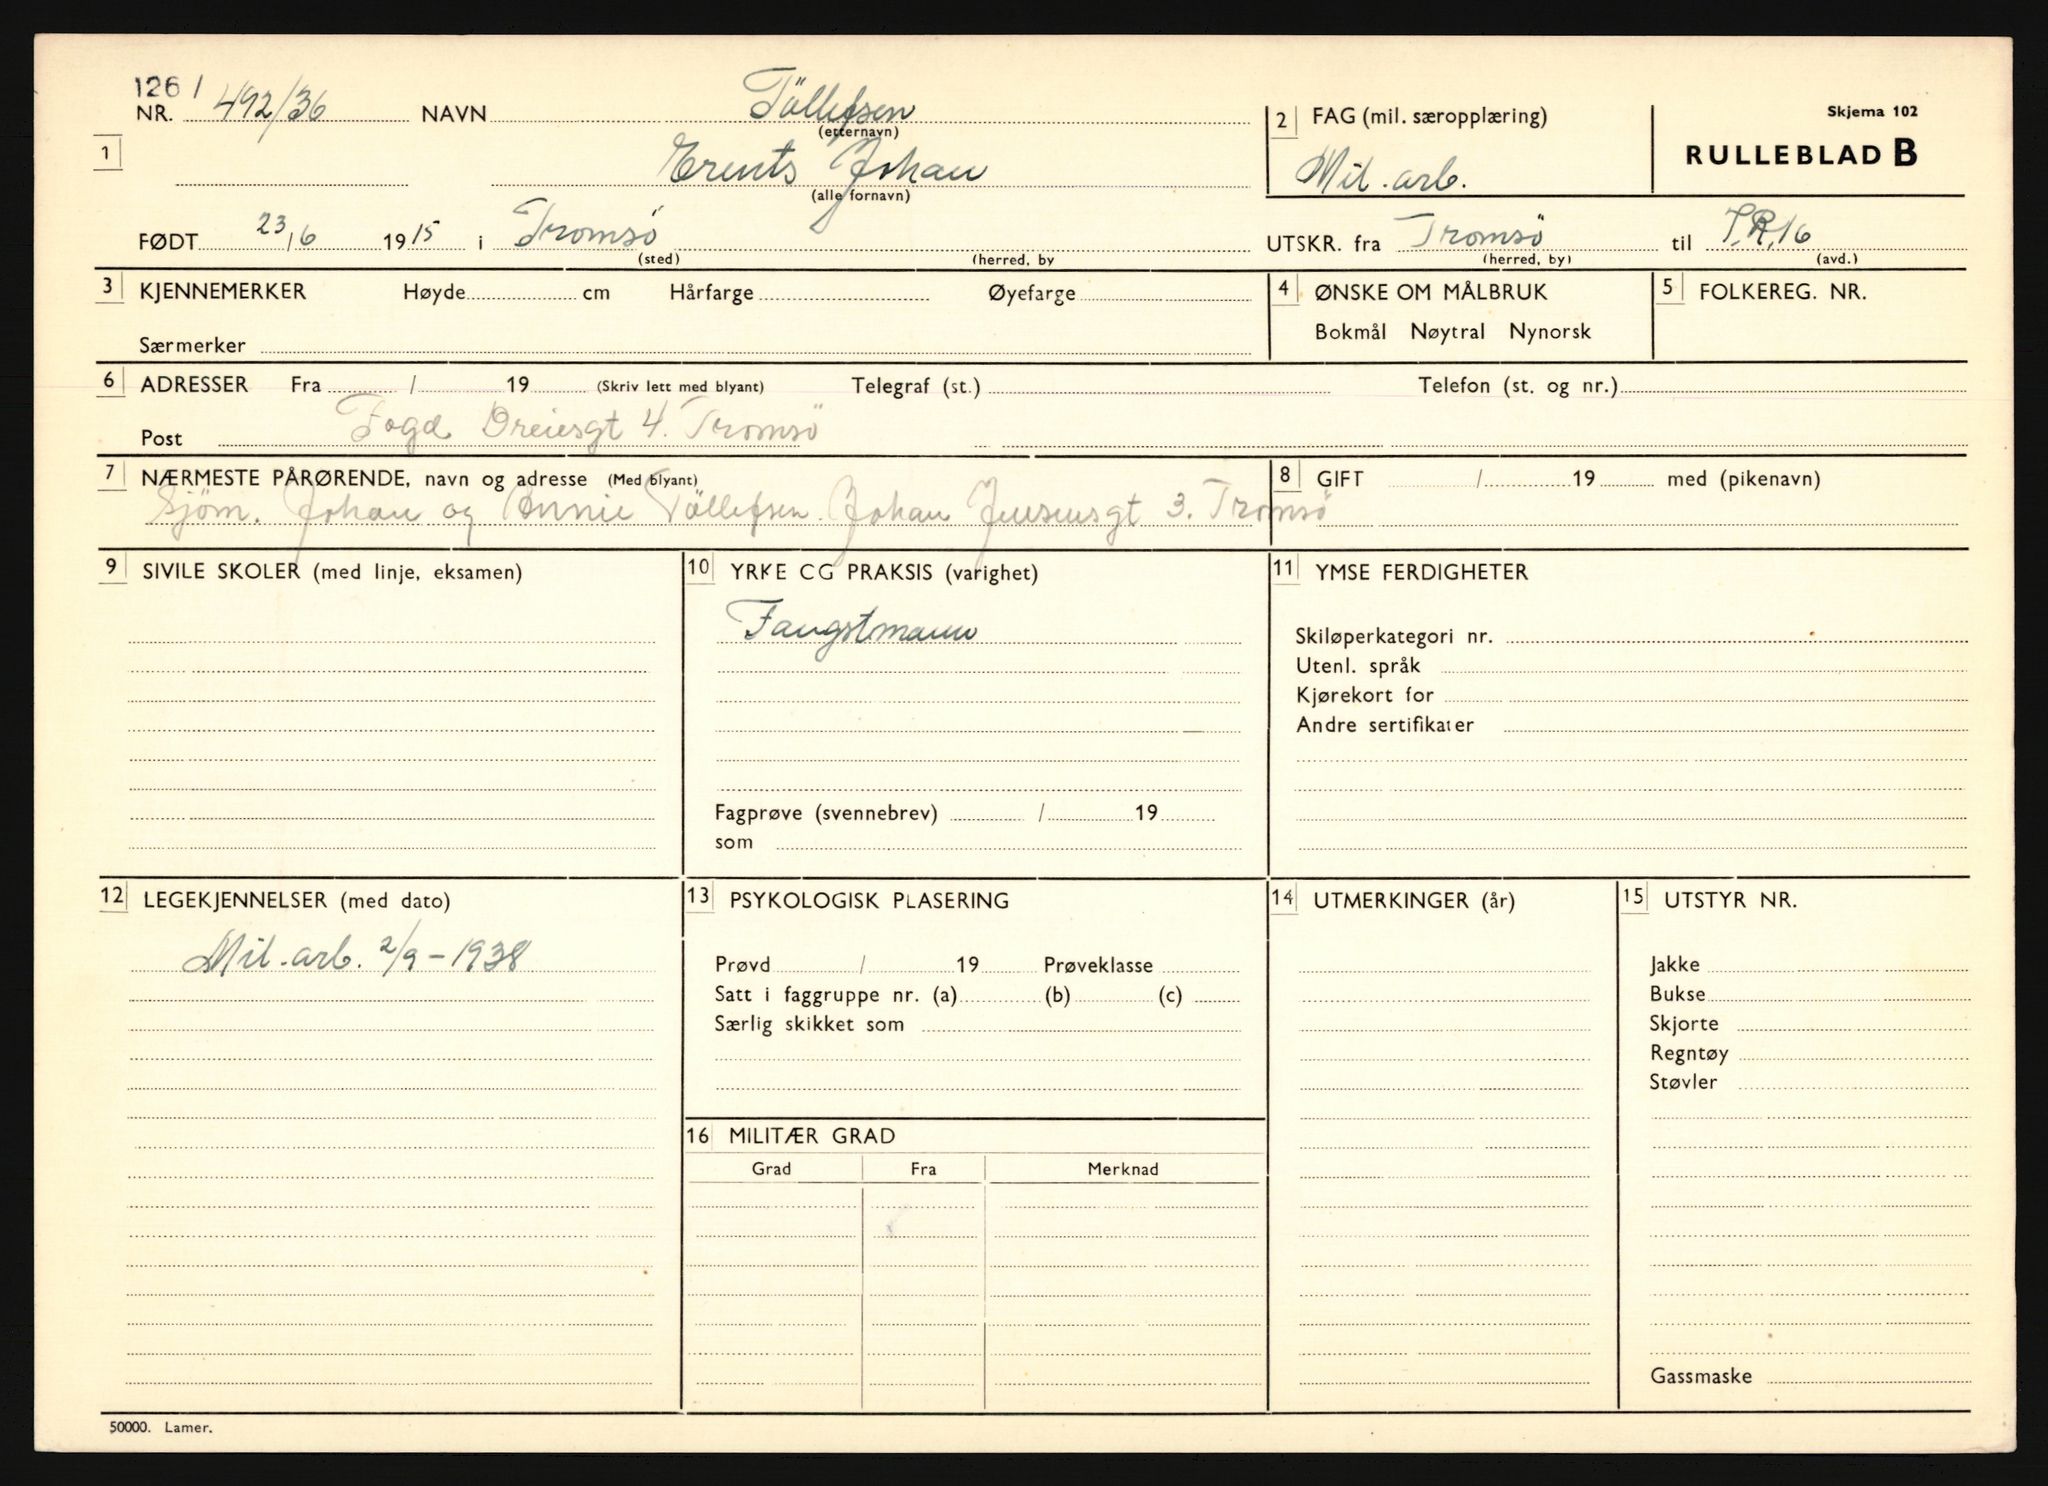 126 /
NR. 492/36 NAVN Töllefsen
(etternavn)
1 Erents Johan
(alle fornavn)
2 FAG (mil. særopplæring)
Mil. arb.
Skjema 102
RULLEBLAD B
FØDT 23/6 1915 i Tromsö
(sted) (herred, by
UTSKR. fra Tromsö til I.R.16
(herred, by) (avd.)
3 KJENNEMERKER Høyde cm Hårfarge Øyefarge
Særmerker
4 ØNSKE OM MÅLBRUK
Bokmål Nøytral Nynorsk
5 FOLKEREG. NR.
6 ADRESSER Fra / 19 (Skriv lett med blyant) Telegraf (st.) Telefon (st. og nr.)
Post Fogd Dreiesgt 4. Tromsö
7 NÆRMESTE PÅRØRENDE, navn og adresse (Med blyant)
Sjöm. Johan og Annie Töllefsen. Johan Jensensgt 3. Tromsö
8 GIFT / 19 med (pikenavn)
9 SIVILE SKOLER (med linje, eksamen)
10 YRKE CG PRAKSIS (varighet)
Fangstmann
Fagprøve (svennebrev) / 19
som
11 YMSE FERDIGHETER
Skiløperkategori nr.
Utenl. språk
Kjørekort for
Andre sertifikater
12 LEGEKJENNELSER (med dato)
Mil. arb. 2/9-1938
13 PSYKOLOGISK PLASERING
Prøvd / 19 Prøveklasse
Satt i faggruppe nr. (a) (b) (c)
Særlig skikket som
14 UTMERKINGER (år)
15 UTSTYR NR.
Jakke
Bukse
Skjorte
Regntøy
Støvler
Gassmaske
16 MILITÆR GRAD
Grad Fra Merknad
50000. Lamer.